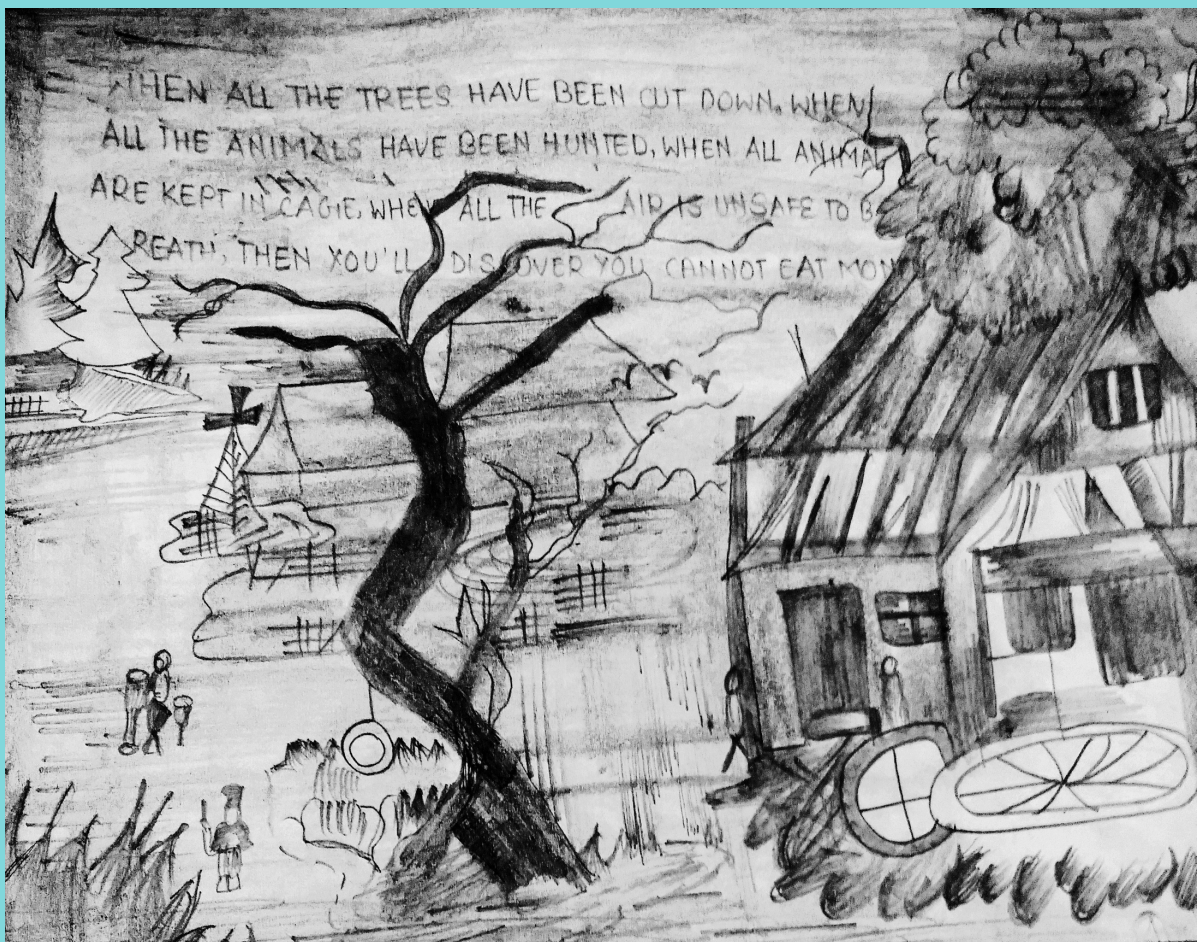 WHEN ALL THE TREES HAVE BEEN CUT DOWN, WHEN
ALL THE ANIMALS HAVE BEEN HUNTED, WHEN ALL ANIMAL
ARE KEPT IN CAGE, WHEN ALL THE AIR IS UNSAFE TO B
REATH, THEN YOU'LL DISCOVER YOU CANNOT EAT MON